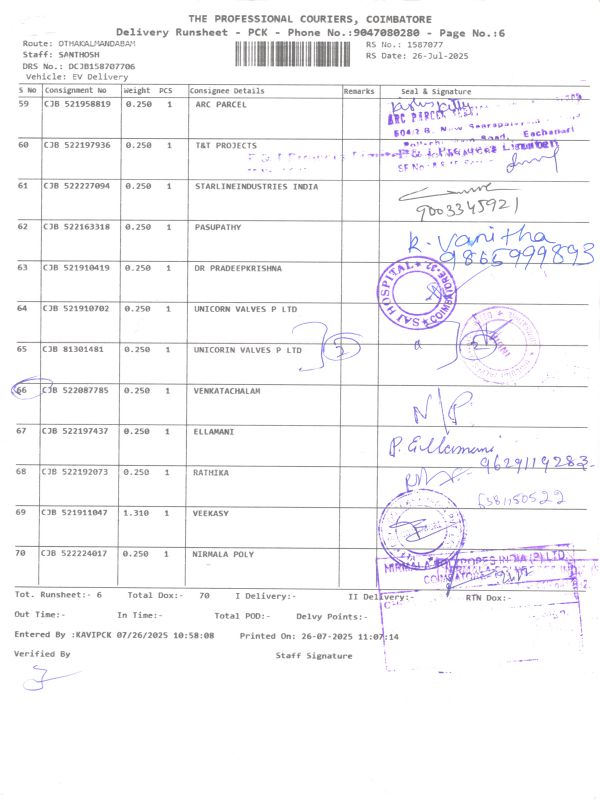 THE PROFESSIONAL COURIERS, COIMBATORE
Delivery Runsheet - PCK - Phone No.:9047080280 - Page No.:6
Route: OTHAKALMANDABAM
RS No.: 1587077
Staff: SANTHOSH
RS Date: 26-Jul-2025
DRS No.: DCJB158707706
Vehicle: EV Delivery
S No Consignment No Weight PCS Consignee Details Remarks Seal & Signature
59 CJB 521958819 0.250 1 ARC PARCEL
ARC PARCEL
60 CJB 522197936 0.250 1 T&T PROJECTS
61 CJB 522227094 0.250 1 STARLINEINDUSTRIES INDIA
9003345921
62 CJB 522163318 0.250 1 PASUPATHY
K. Vanitha
9865999893
63 CJB 521910419 0.250 1 DR PRADEEPKRISHNA
SAI HOSPITAL COIMBATORE-32
64 CJB 521910702 0.250 1 UNICORN VALVES P LTD
2 2
65 CJB 81301481 0.250 1 UNICORIN VALVES P LTD
66 CJB 522087785 0.250 1 VENKATACHALAM
N/P
67 CJB 522197437 0.250 1 ELLAMANI
P. Ellamani
9629119283
68 CJB 522192073 0.250 1 RATHIKA
6381150522
69 CJB 521911047 1.310 1 VEEKASY
70 CJB 522224017 0.250 1 NIRMALA POLY
NIRMALA POLYROPES INDIA (P) LTD
COIMBATORE
Tot. Runsheet:- 6 Total Dox:- 70 I Delivery:- II Delivery:- RTN Dox:-
Out Time:- In Time:- Total POD:- Delvy Points:-
Entered By :KAVIPCK 07/26/2025 10:58:08 Printed On: 26-07-2025 11:07:14
Verified By Staff Signature